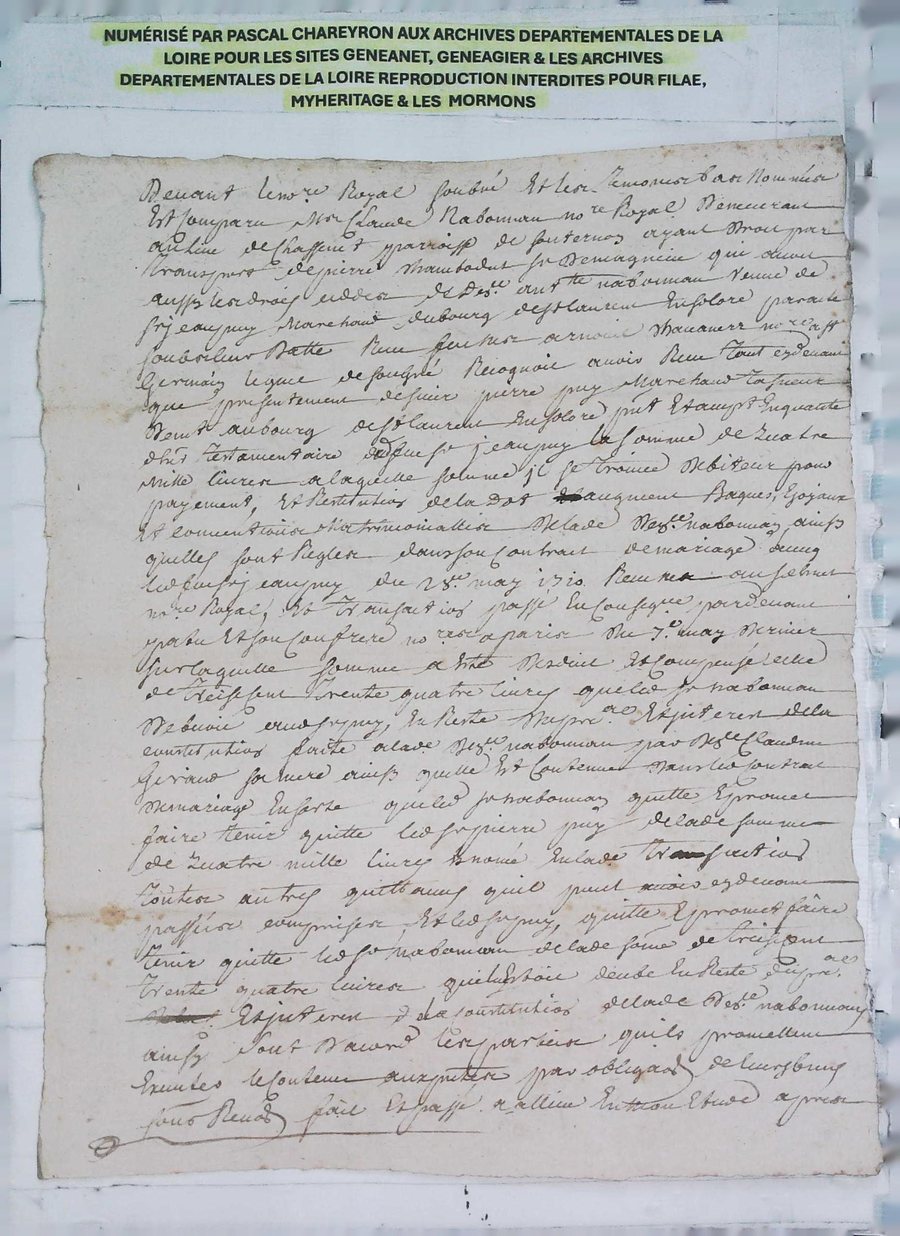 NUMÉRISÉ PAR PASCAL CHAREYRON AUX ARCHIVES DEPARTEMENTALES DE LA
LOIRE POUR LES SITES GENEANET, GENEAGIER & LES ARCHIVES
DEPARTEMENTALES DE LA LOIRE REPRODUCTION INTERDITES POUR FILAE,
MYHERITAGE & LES MORMONS
Devant le no.re Royal soubné Et les Temoins bas Nommés
Est Comparu M.e Claude Nabonnan no.re Royal Demeurant
au lieu de parroisse de souternon ayant Droit par
transport de pierre qui avoit
aussy les droits de des.lle nabonnan veuve de
sr jean puy Marchand du bourg de st laurent En solore
Recu
Germain Recognoit avoir Recu Tant cy devant
que presentement de sieur pierre puy Marchand
dem.t au bourg de st laurent En solore En qualité
testamentaire du feu sr jean puy la somme de Quatre
Mille livres a laquelle somme il se trouve Debiteur pour
payement, Et Restitution de la Dot augment Bagues, Et joyaux
Et conventions Matrimonialles De lade Des.lle nabonnan, ainsy
quelles sont Reglées dans son Contrat de mariage avec
led feu sr jean puy du 28.e may 1710. Recu
no.re Royal, Et Transaction passé En conseq.ce pardevant
Et son Confrere no.res a paris Du 7.e may Dernier
sur laquelle somme a Eté Deduit Et Compensé celle
de Treis cent Trente quatre livres que led sr nabonnan
Devoit aud sr puy, En Reste Du pr.al Et interest de la
constitution faite a lade Des.lle nabonnan par Des.lle Claudine
sa mere ainsy quelle Est Contenue Dans led Contrat
De mariage En sorte que led sr nabonnan quitte Et promet
faire tenir quitte led sr pierre puy de lade somme
de Quatre mille livres Enoncé En lade Transaction
toutes autres quittances quil peut avoir cy devant
passées comprises Et led sr puy, quitte Et promet faire
tenir quitte led sr Nabonnan de lade some de treis cent
trente quatre livres quil Estoit deube En Reste du pr.al
Et interest de la Constitution de lade Des.lle nabonnan
ainsy sont D'acord les parties quils promettent
Executer le Contenu aux peines par obligaon de leurs biens
sous Renon fait Et passé a allieu En mon Etude apres